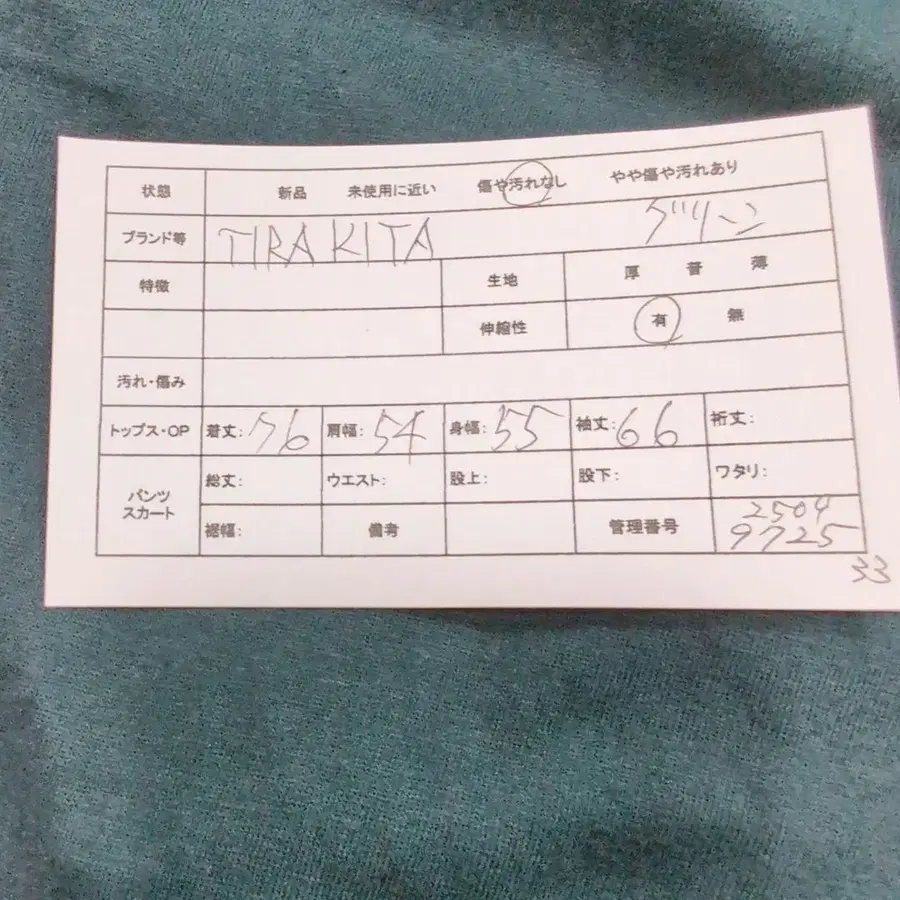 状態 新品 未使用に近い 傷や汚れなし やや傷や汚れあり
ブランド等 TIRAKITA グリーン
特徴 生地 厚 普 薄
伸縮性 有 無
汚れ・傷み
トップス・OP 着丈: 76 肩幅: 54 身幅: 55 袖丈: 66 裄丈:
パンツ スカート 総丈: ウエスト: 股上: 股下: ワタリ:
裾幅: 備考 管理番号 2504 9725
33